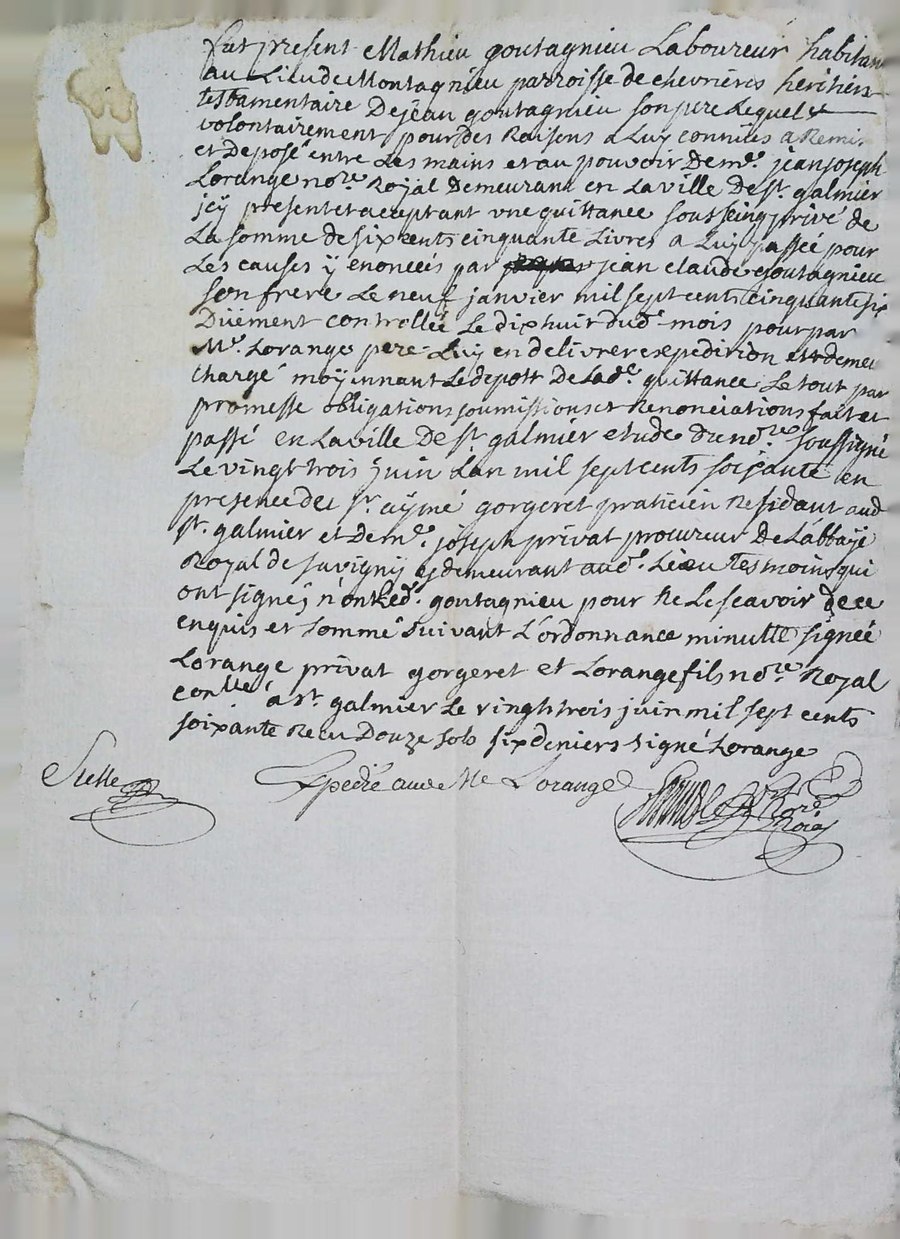 fut present Mathieu goutagnieu Laboureur habitan
au Lieu de Montagnieu parroisse de chevrieres heritier
testamentaire De jean goutagnieu son pere Lequel
volontairement pour des Raisons a Luy connües a Remi
et Deposé entre Les mains et au pouvoir De me. jean joseph
Lorange nore. Royal Demeurant en La ville De st. galmier
jcy present et acceptant vne quittance sous seing privé de
La somme de six cents cinquante Livres a Luy passée pour
Les causes ÿ enoncées par jean claude goutagnieu
son frere Le neuf janvier mil sept cents cinquante six
Düement controllée Le dix huit dud. mois pour par
Me. Lorange pere Luy en delivrer expedition et deme
chargé moÿennant Le depott De Lade. quittance Le tout par
promesse obligations soumissions et Renonciations fait et
passé en La ville De st galmier etude du nore. soussigné
Le vingt trois juin Lan mil sept cents soixante en
presence de sr. aÿmé gorgeret praticien Residant aud
st. galmier et De me. joseph privat procureur De Labbaÿe
Royal de savigny y demeurant aud. Lieu tesmoins qui
ont signé non Led. goutagnieu pour Ne Le scavoir de ce
enquis et sommé suivant L'ordonnance minutte signée
Lorange privat gorgeret et Lorange fils nore. Royal
conllé a st. galmier Le vingt trois juin mil sept cents
soixante Recu Douze sols six deniers signé Lorange
Expedié a Me Lorange